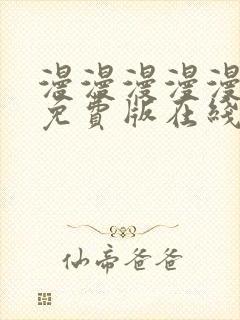 漫漫漫漫漫
免費版在綫
仙帝爸爸